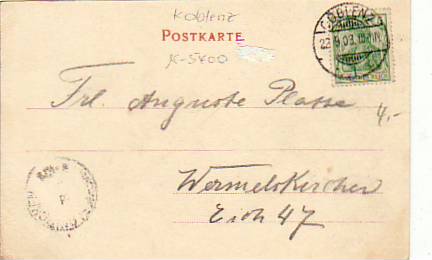 Koblenz
POSTKARTE
K-5400
COBLENZ
Frl. Auguste Plasse
4,-
Wermelskirchen
Eich 47